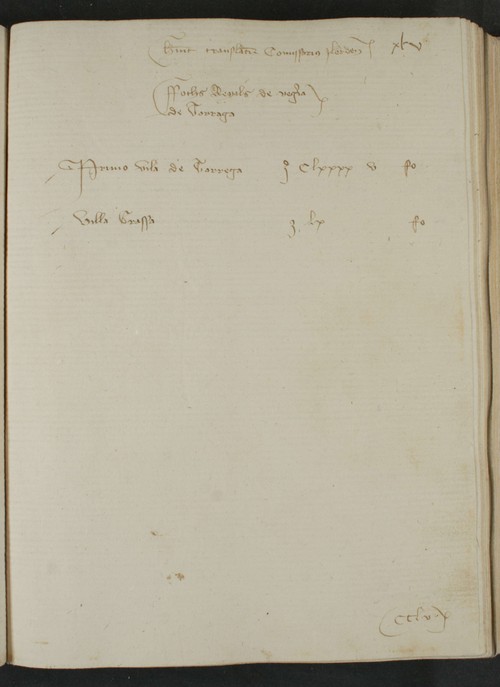 Sunt translat Comissario xlv
Fochs Reyals de vegria
de Tarraga
Primo vila de Tarrega j Clxxxx v fo
Villa Grassa j lx fo
CClv